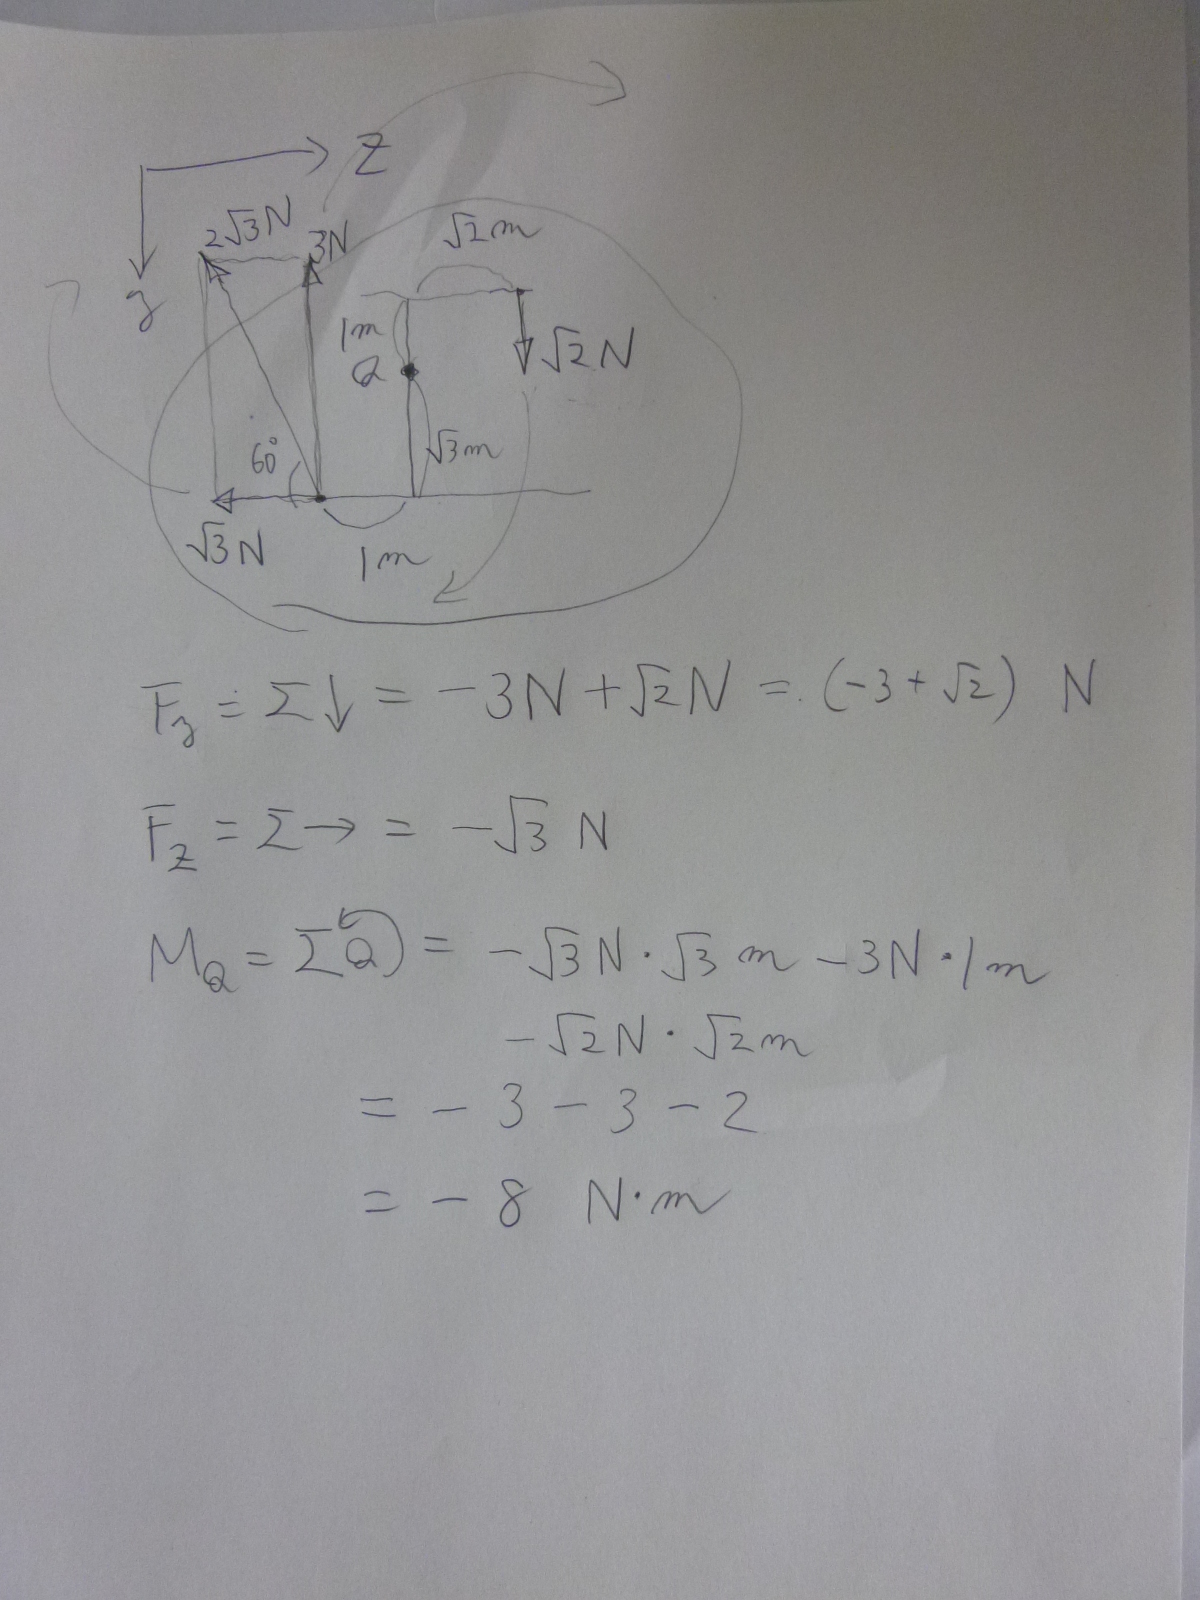 Z
y
2√3N
3N
√2m
1m
Q
√2N
√3m
60°
√3N
1m
Fy = Σ↓ = -3N+√2N = (-3+√2) N
Fz = Σ→ = -√3 N
MQ = ΣQ) = -√3N・√3m -3N・1m
-√2N・√2m
= -3-3-2
= -8 N・m